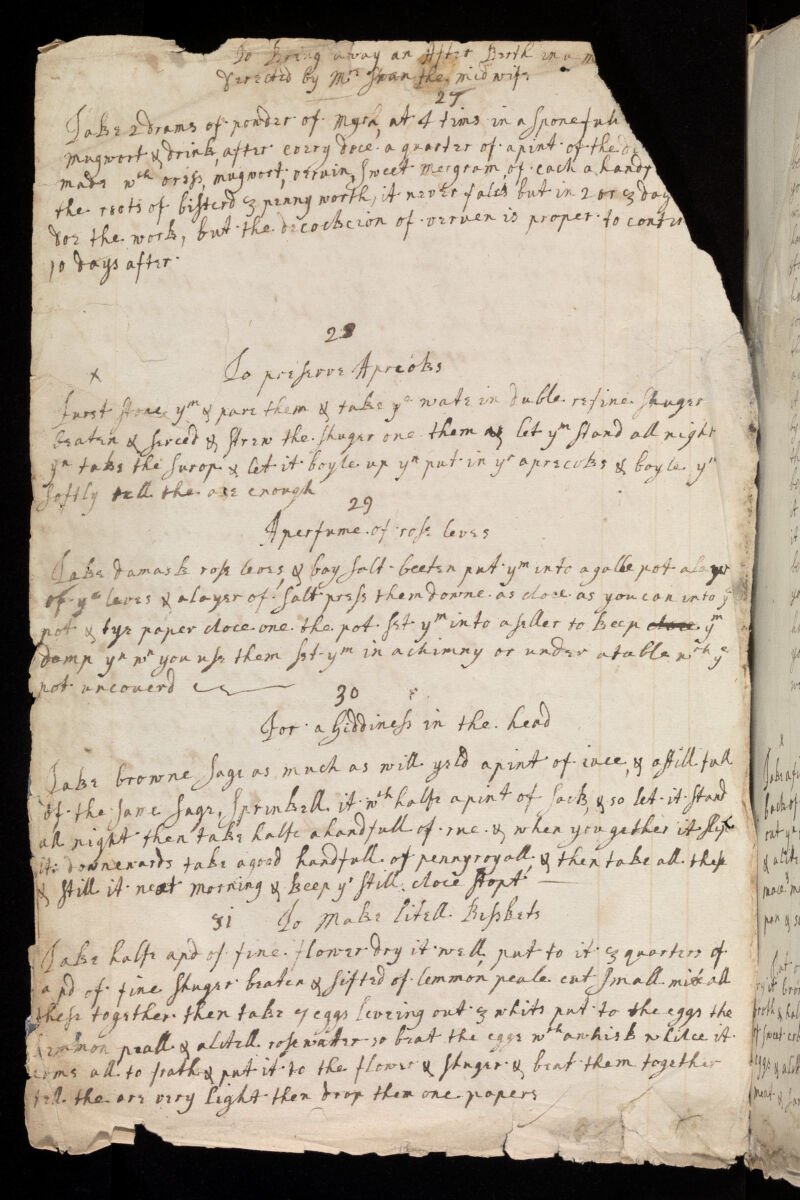 To Bring away an After Berth in a
derected by Mrs Swan the midwife
27
Take 2 drams of powder of Myrh, at 4 tims in a sponefull
mugwort & drink, after every doce a quarter of a pint of the
made wth oress, mugwort, vervin, sweet mergram, of each a handf
the roots of bisterd 3 penny worth, it never fales but in 2 or 3 day
doe the work, but the decockcion of verven is proper to contin
10 days after
28
x To preserve Aprecoks
furst stone ym & pare them & take ye wate in duble refine shuger
beaten & serced & strew the shuger one them & let ym stand all night
yn take the surop & let it boyle up yn put in yr aprecoks & boyle ym
softly till the are enough
29
A perfume of rose leves
Take damask rose leves & bay salt beeten put ym into a galle pot a layer
of ye leves & a layer of salt press them downe as cloce as you can into ye
pot & tye paper cloce one the pot set ym into a seller to keep cloce ym
damp yn wn you use them set ym in a chimny or under a table wth ye
pot uncoverd
30
For a Giddiness in the head
Take browne sage as much as will yeld a pint of iuce, & a still full
of the same sage, sprinkell it wth halfe a pint of sack, & so let it stand
all night then take halfe a handfull of rue & when you gether it slip
it downewards take a good handfull of pennyroyall, & then take all these
& still it next morning & keep yr still cloce stopt
31 To Make litell Bisskets
Take halfe a pd of fine flower dry it well put to it 3 quarters of
a pd of fine shuger beaten & sifted of lemmon peale cut small mix all
these together then take 7 eggs leveing out 3 whits put to the eggs the
lemmon peall & a litell rosewater so beat the eggs wth a whisk whilce it
coms all to froth & put it to the flower & shuger & beat them together
till the are very light then drop them one papers